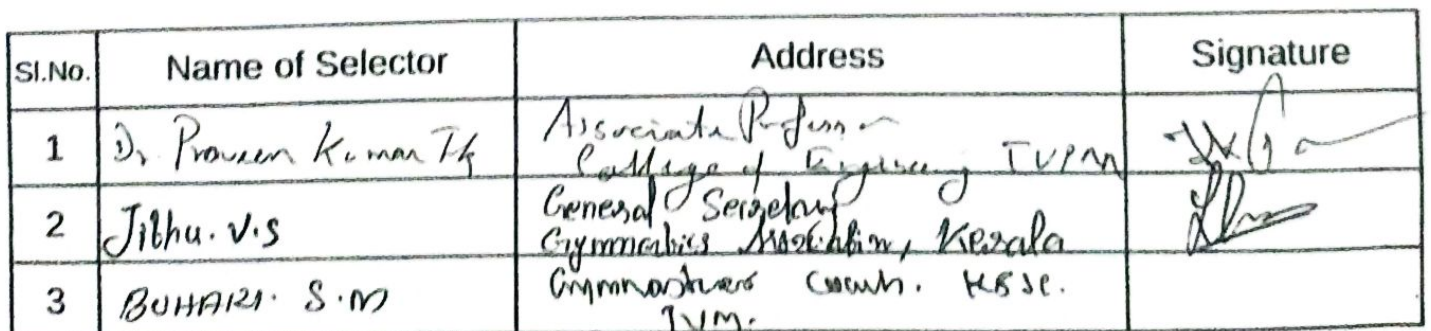 Sl.No. Name of Selector Address Signature
1 Dr Praveen Kumar TK Associate Professor
College of Engineering TVPM
2 Jithu. V.S General Secretary
Gymnastics Association, Kerala
3 BUHARI. S.M Gymnastics Coach. KSSC.
TVM.